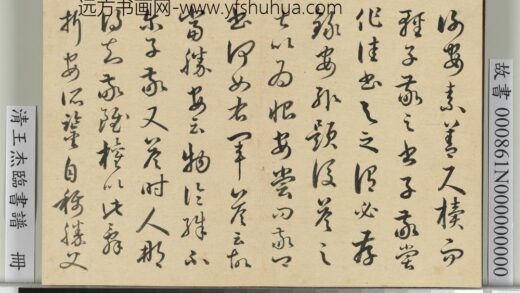 远方书画网-www.yfshuhua.com
故書 000861N000000000
謝安素善尺牘而
輕子敬之書子敬嘗
作佳書與之謂必存
錄安輒題後答之
甚以為恨安嘗問敬卿
書何如右軍答云故
當勝安云物論殊不
爾子敬又答時人那
得知敬雖權以此辭
折安所鑒自稱勝父
清王杰臨書譜 冊